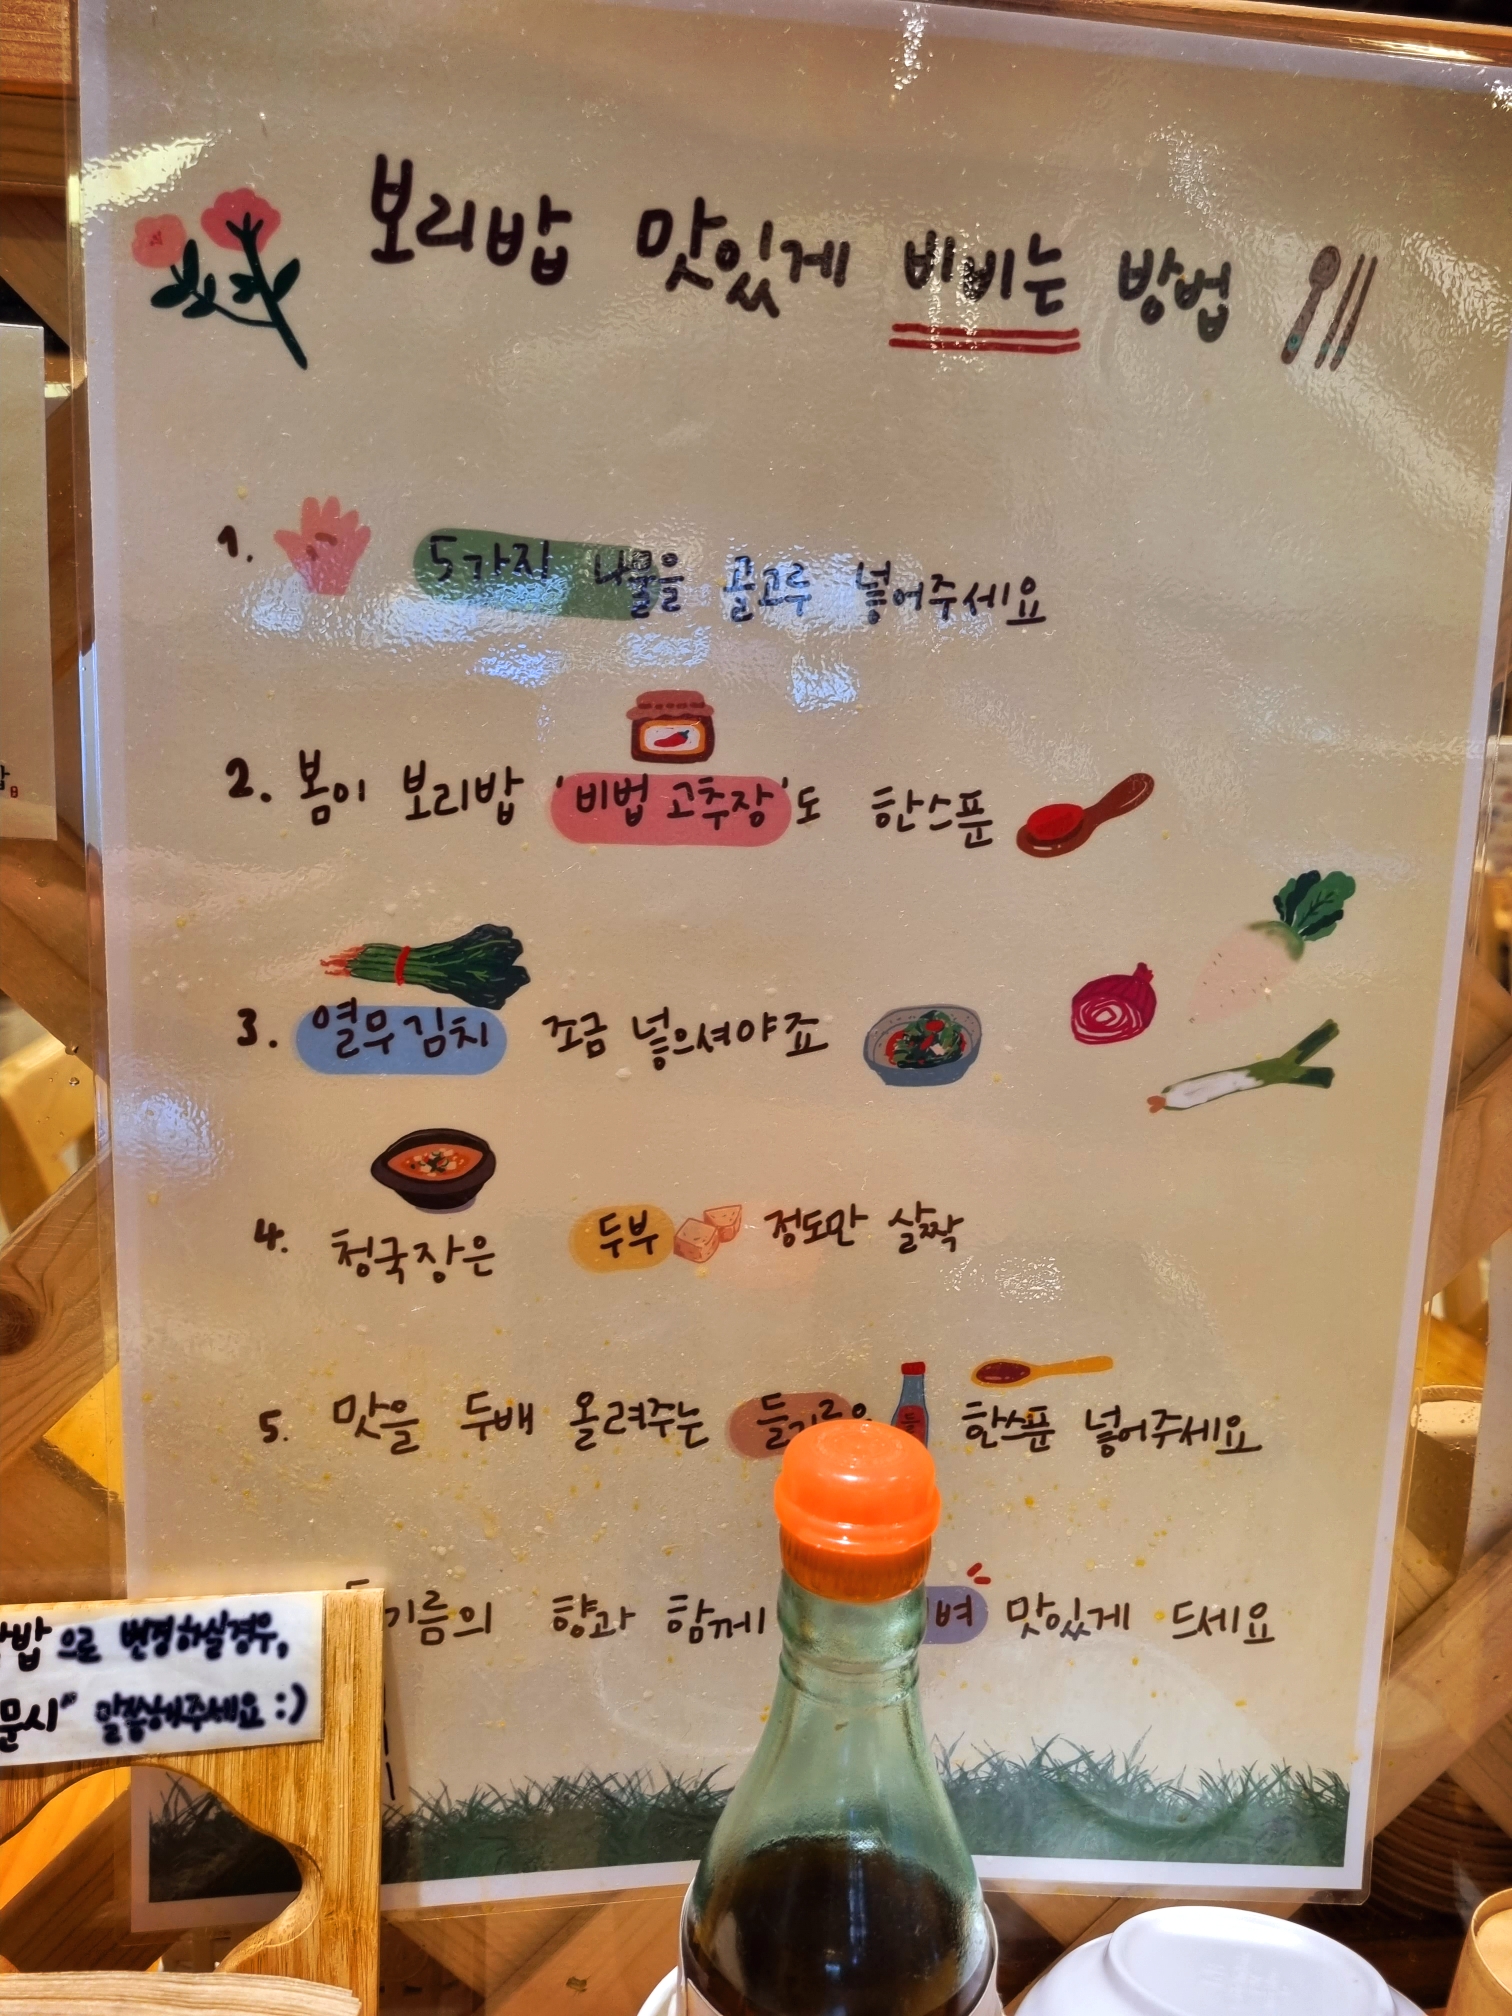 보리밥 맛있게 비비는 방법
1. 5가지 나물을 골고루 넣어주세요
2. 봄이 보리밥 '비법 고추장'도 한스푼
3. 열무김치 조금 넣으셔야죠
4. 청국장은 두부 정도만 살짝
5. 맛을 두배 올려주는 한스푼 넣어주세요
기름의 향과 함께 벼 맛있게 드세요
밥으로 변경하실경우,
문시" 말씀해주세요 :)